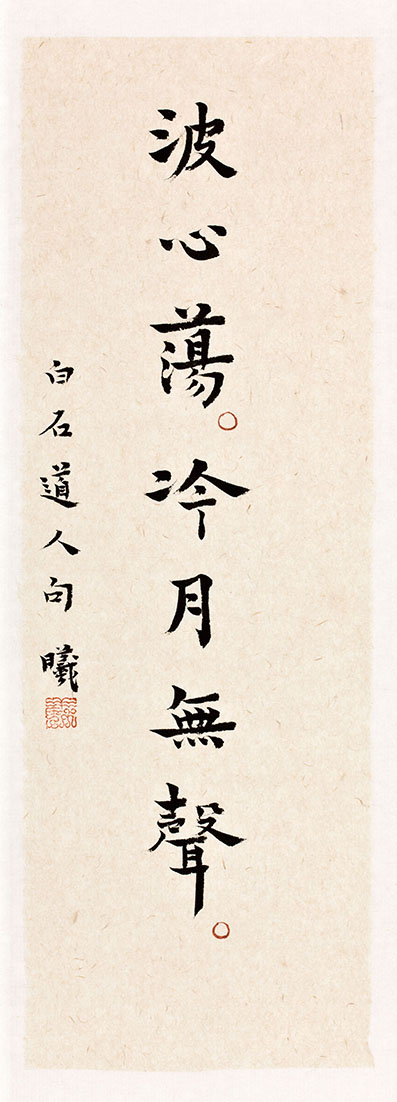 波心蕩。冷月無聲。
白石道人句 曦